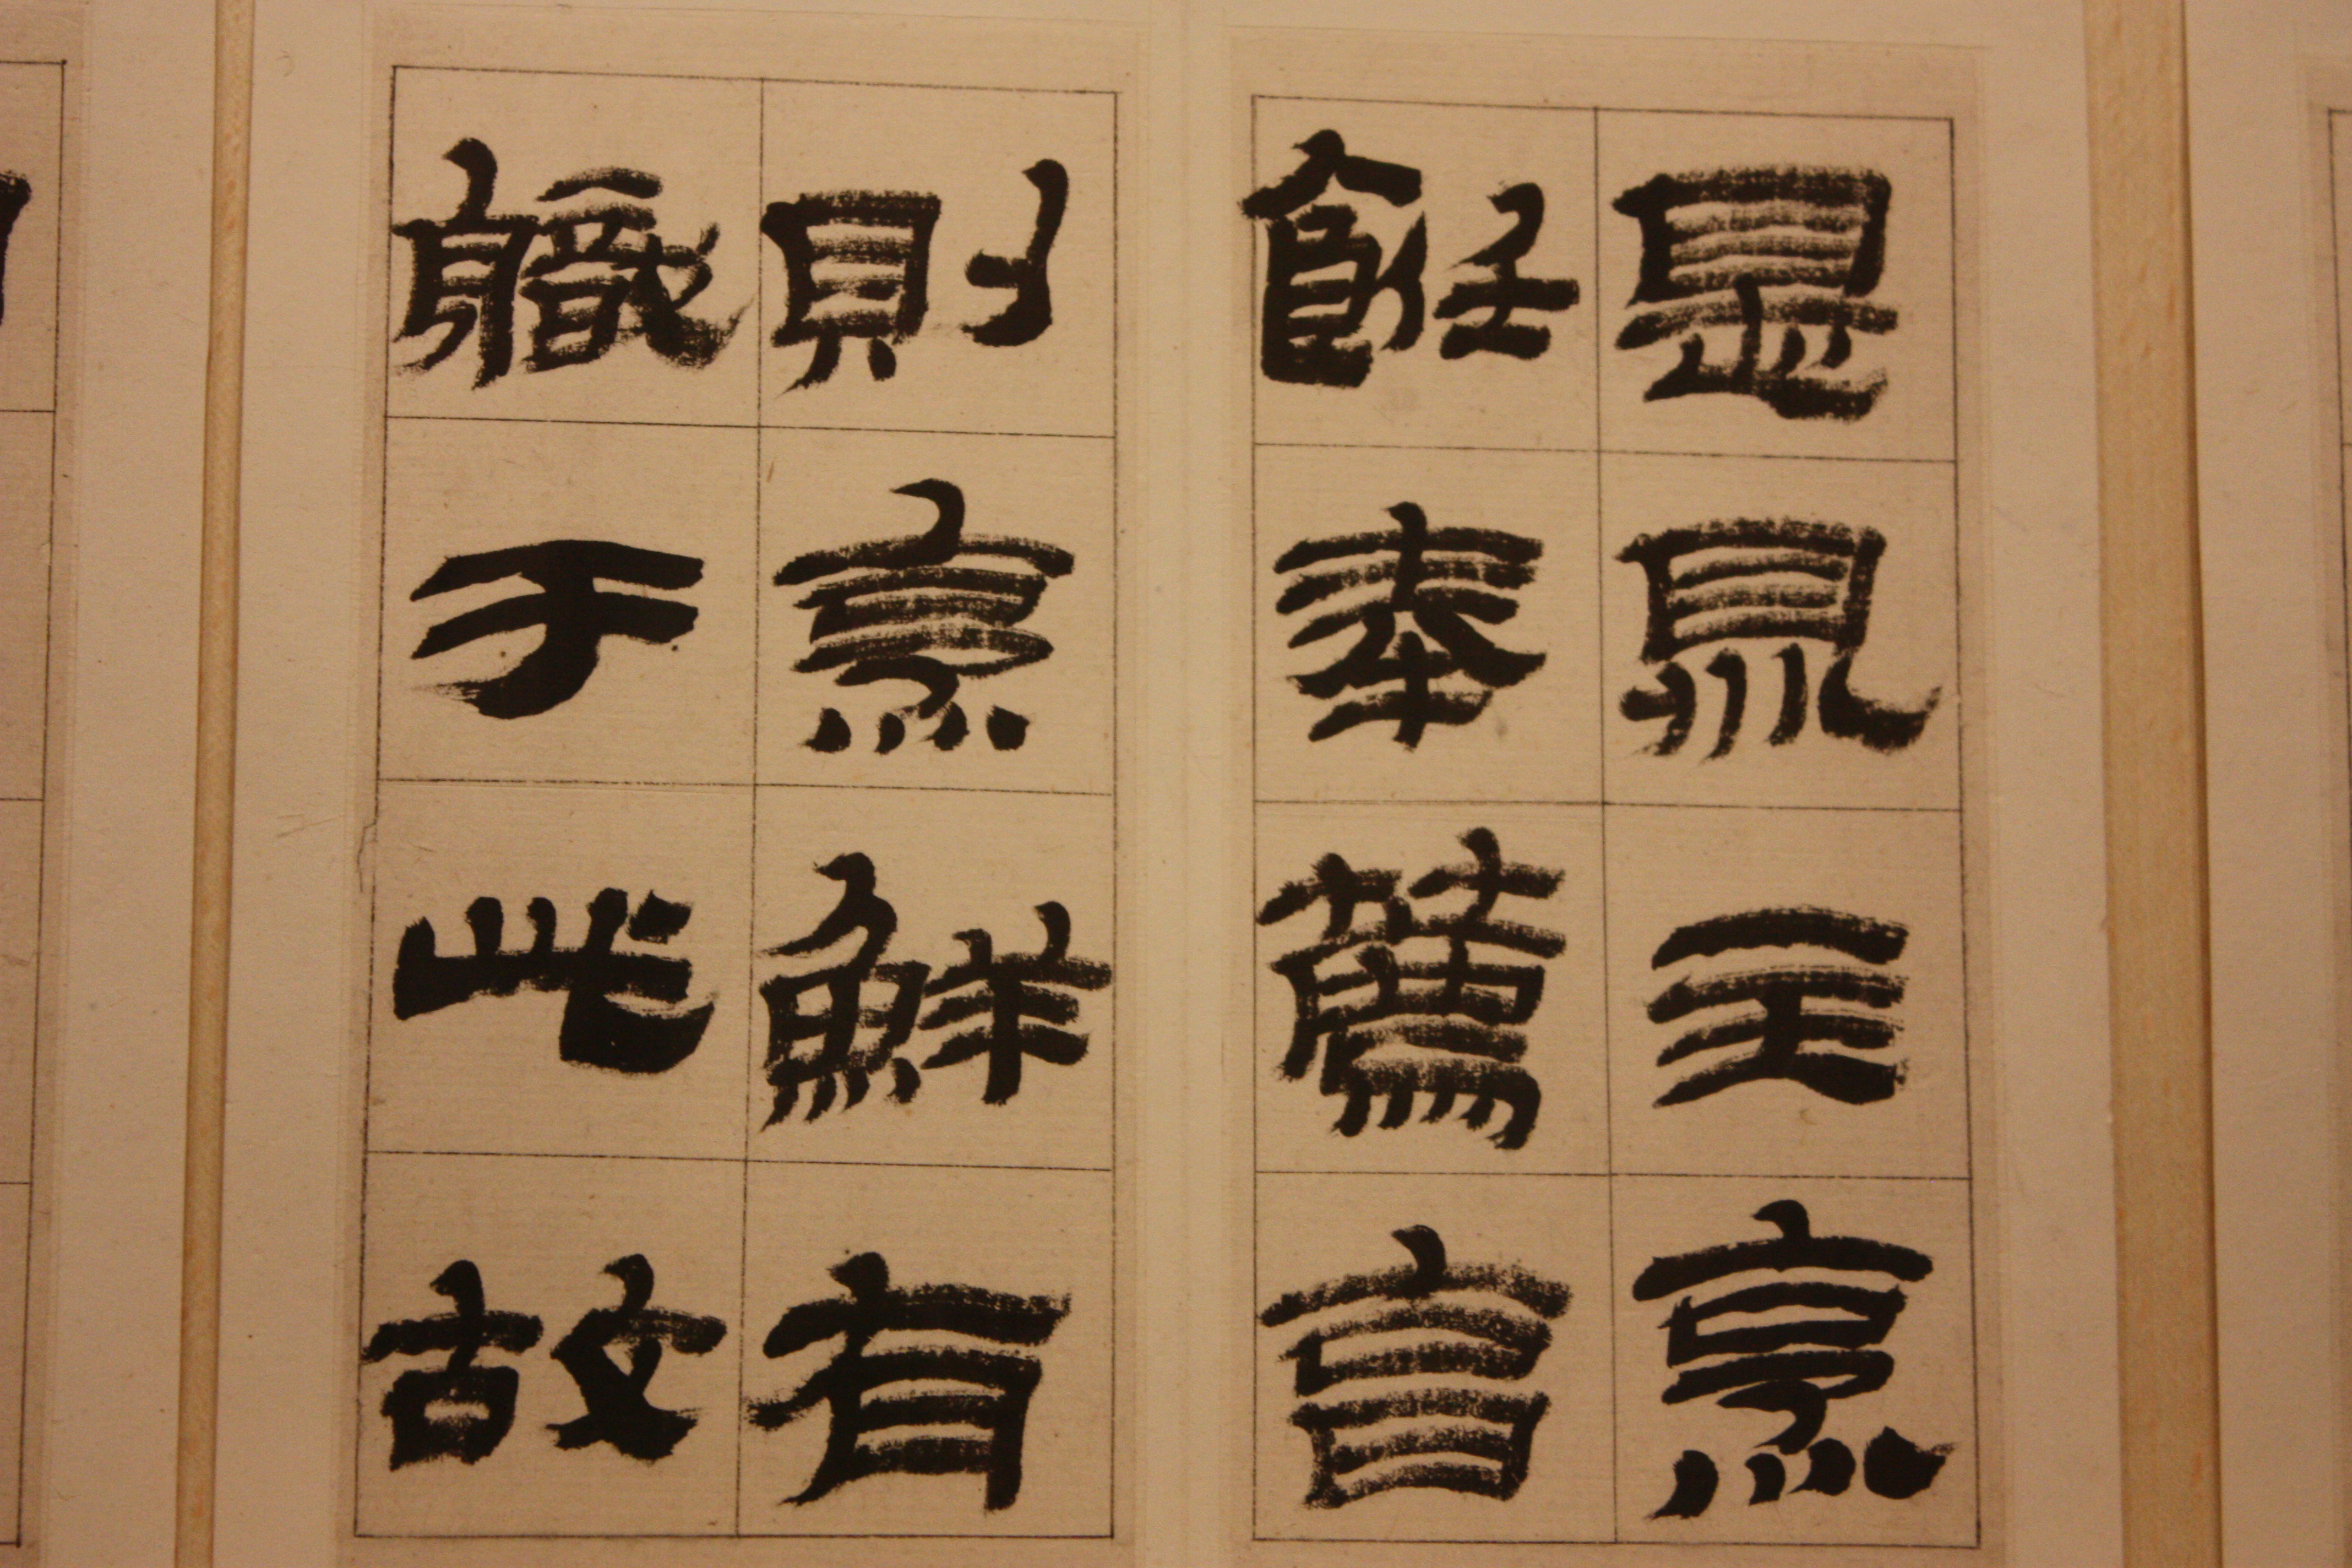 是鼎主烹
飪奉薦亯
則烹鮮有
職于此故